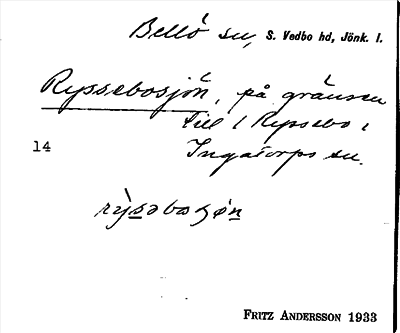 Bellö sn, S. Vedbo hd, Jönk. l.
Ryssebosjön, på gränsen
till 1 Ryssebo i
14 Ingatorps sn.
rỳsəbosjøn
FRITZ ANDERSSON 1933